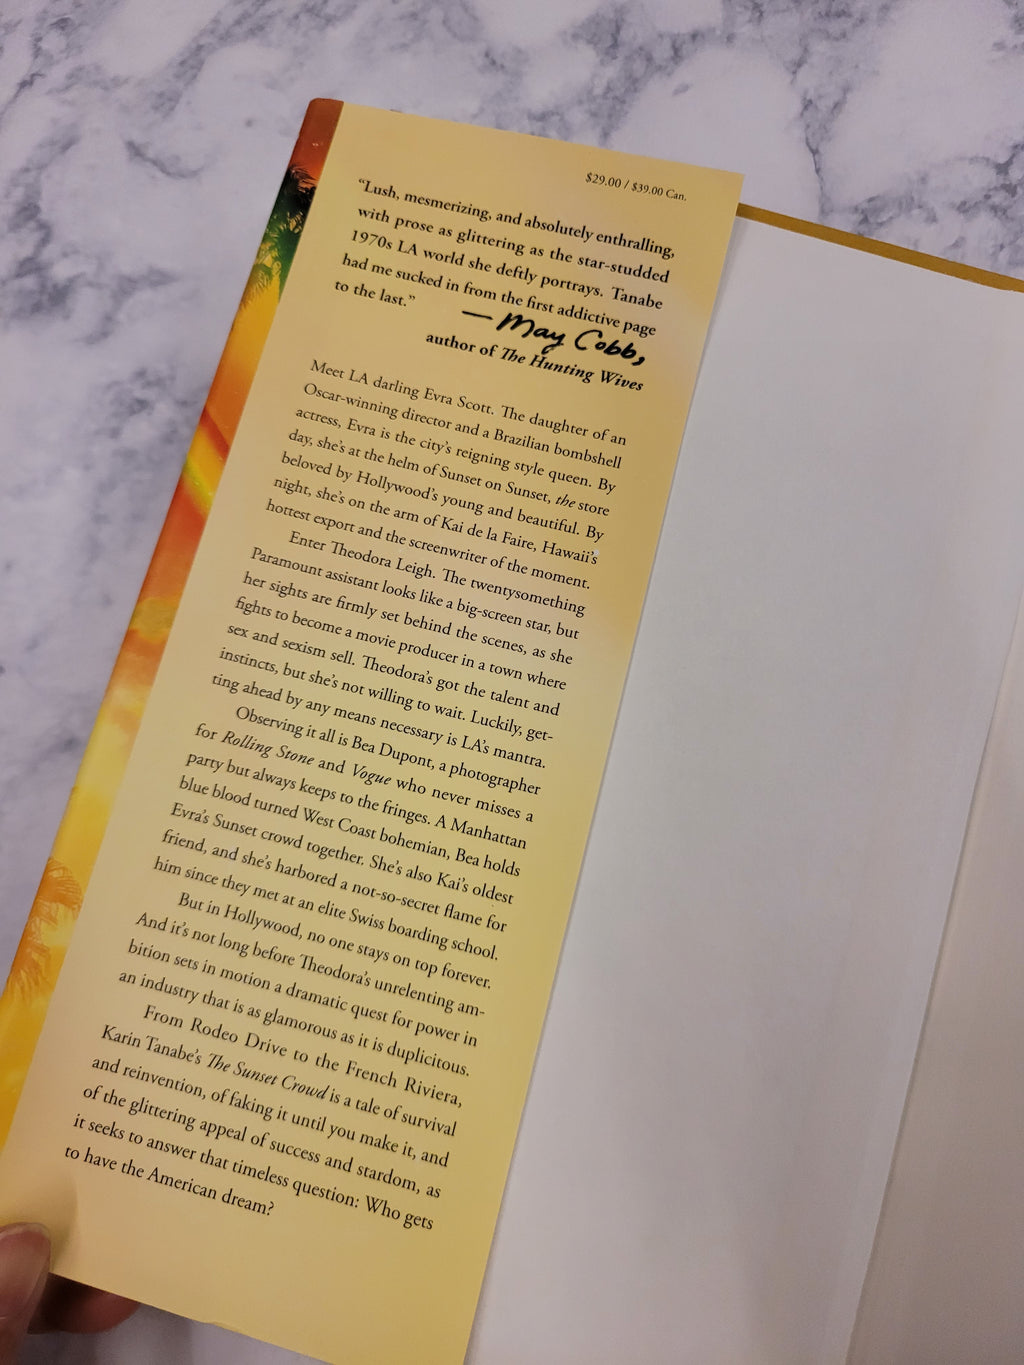 $29.00 / $39.00 Can.
“Lush, mesmerizing, and absolutely enthralling,
with prose as glittering as the star-studded
1970s LA world she deftly portrays. Tanabe
had me sucked in from the first addictive page
to the last.”
— May Cobb,
author of The Hunting Wives
Meet LA darling Evra Scott. The daughter of an
Oscar-winning director and a Brazilian bombshell
actress, Evra is the city’s reigning style queen. By
day, she’s at the helm of Sunset on Sunset, the store
beloved by Hollywood’s young and beautiful. By
night, she’s on the arm of Kai de la Faire, Hawaii’s
hottest export and the screenwriter of the moment.
Enter Theodora Leigh. The twentysomething
Paramount assistant looks like a big-screen star, but
her sights are firmly set behind the scenes, as she
fights to become a movie producer in a town where
sex and sexism sell. Theodora’s got the talent and
instincts, but she’s not willing to wait. Luckily, get-
ting ahead by any means necessary is LA’s mantra.
Observing it all is Bea Dupont, a photographer
for Rolling Stone and Vogue who never misses a
party but always keeps to the fringes. A Manhattan
blue blood turned West Coast bohemian, Bea holds
Evra’s Sunset crowd together. She’s also Kai’s oldest
friend, and she’s harbored a not-so-secret flame for
him since they met at an elite Swiss boarding school.
But in Hollywood, no one stays on top forever.
And it’s not long before Theodora’s unrelenting am-
bition sets in motion a dramatic quest for power in
an industry that is as glamorous as it is duplicitous.
From Rodeo Drive to the French Riviera,
Karin Tanabe’s The Sunset Crowd is a tale of survival
and reinvention, of faking it until you make it, and
of the glittering appeal of success and stardom, as
it seeks to answer that timeless question: Who gets
to have the American dream?